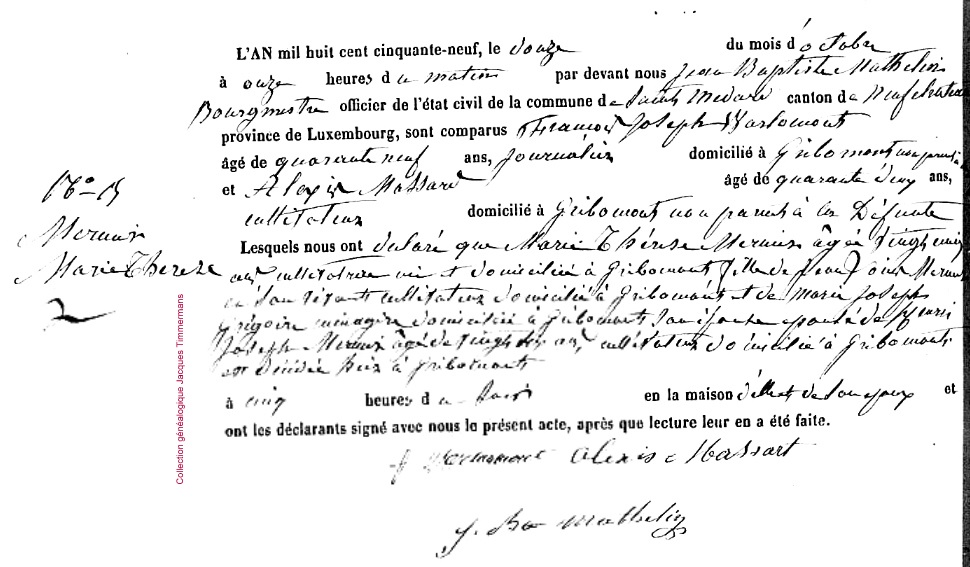 L'AN mil huit cent cinquante-neuf, le douze du mois d'octobre
à onze heures du matin par devant nous Jean Baptiste Mathelin
Bourgmestre officier de l'état civil de la commune de Saint Medard canton de Neufchateau
province de Luxembourg, sont comparus François Joseph Warlomont
âgé de quarante neuf ans, journalier domicilié à Gribomont non parent à
et Alexis Massard âgé de quarante deux ans,
cultivateur domicilié à Gribomont non parent à la Défunte
Lesquels nous ont declaré que Marie Thérèse Mernier âgée vingt cinq
ans cultivatrice née et domiciliée à Gribomont fille de Jean Mernier
en son vivant cultivateur domicilié à Gribomont et de Marie Joseph
Grégoire ménagère domiciliée à Gribomont épouse de Henri
Joseph Mernier âgé de vingt ans, cultivateur domicilié à Gribomont
est Décédée hier à Gribomont
à cinq heures du soir en la maison de son epoux et
ont les déclarants signé avec nous le présent acte, après que lecture leur en a été faite.
Warlomont Alexis Massart
J. Bte Mathelin
Mernier
Marie Therese
Collection généalogique Jacques Timmermans